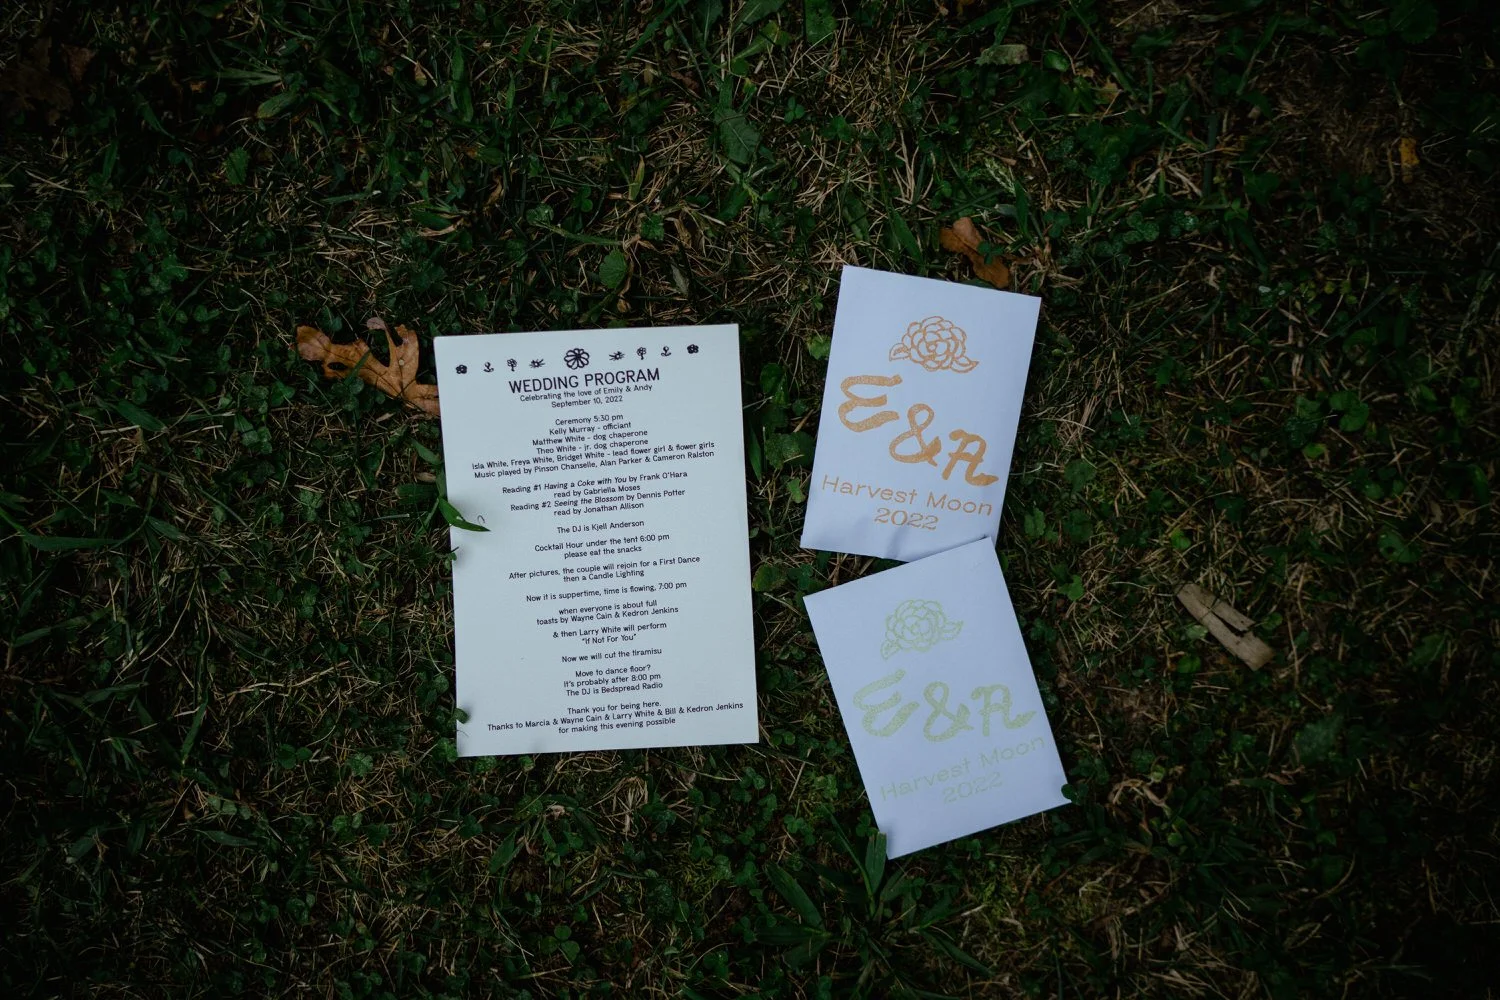 WEDDING PROGRAM
Celebrating the love of Emily & Andy
September 10, 2022
Ceremony 5:30 pm
Kelly Murray - officiant
Matthew White - dog chaperone
Theo White - jr. dog chaperone
Isla White, Freya White, Bridget White - lead flower girl & flower girls
Music played by Pinson Chanselle, Alan Parker & Cameron Ralston
Reading #1 Having a Coke with You by Frank O'Hara
read by Gabriella Moses
Reading #2 Seeing the Blossom by Dennis Potter
read by Jonathan Allison
The DJ is Kjell Anderson
Cocktail Hour under the tent 6:00 pm
please eat the snacks
After pictures, the couple will rejoin for a First Dance
then a Candle Lighting
Now it is suppertime, time is flowing, 7:00 pm
when everyone is about full
toasts by Wayne Cain & Kedron Jenkins
& then Larry White will perform
"If Not For You"
Now we will cut the tiramisu
Move to dance floor?
It's probably after 8:00 pm
The DJ is Bedspread Radio
Thank you for being here.
Thanks to Marcia & Wayne Cain & Larry White & Bill & Kedron Jenkins
for making this evening possible
E&A
Harvest Moon
2022
E&A
Harvest Moon
2022